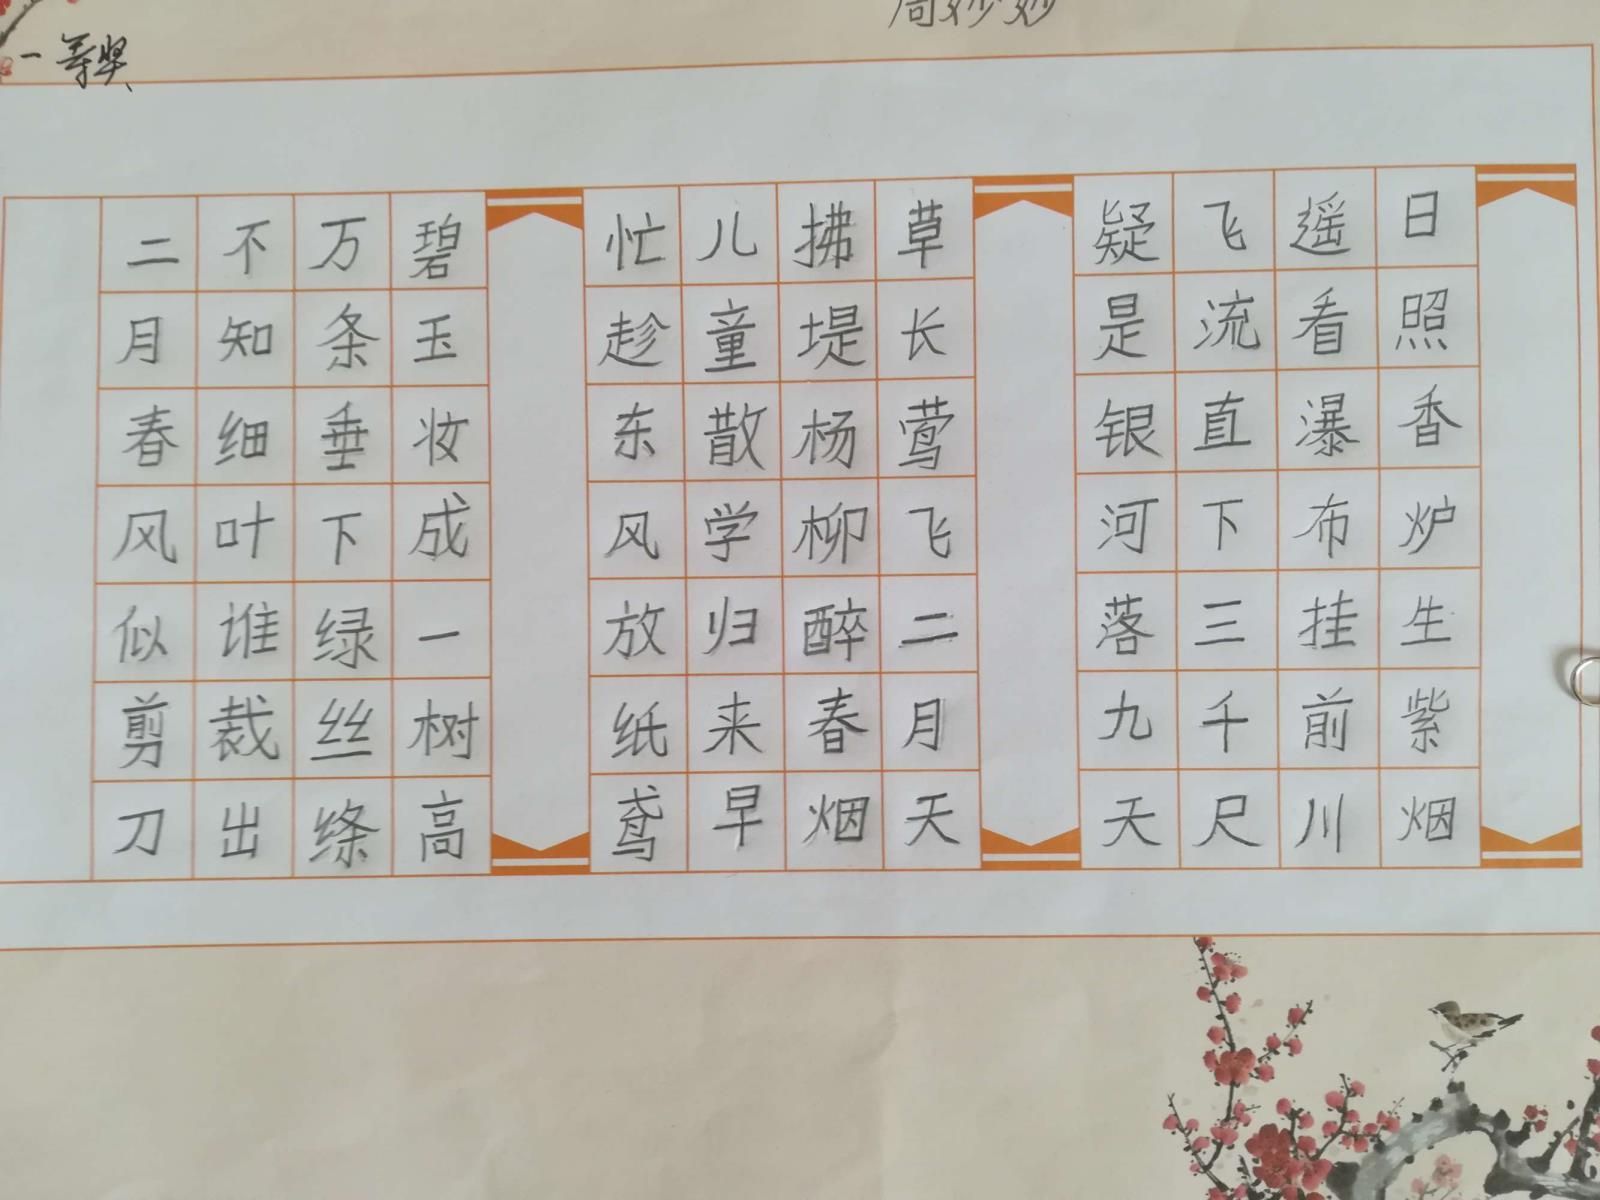 周妙妙
一等奖
日照香炉生紫烟
遥看瀑布挂前川
飞流直下三千尺
疑是银河落九天
草长莺飞二月天
拂堤杨柳醉春烟
儿童散学归来早
忙趁东风放纸鸢
碧玉妆成一树高
万条垂下绿丝绦
不知细叶谁裁出
二月春风似剪刀